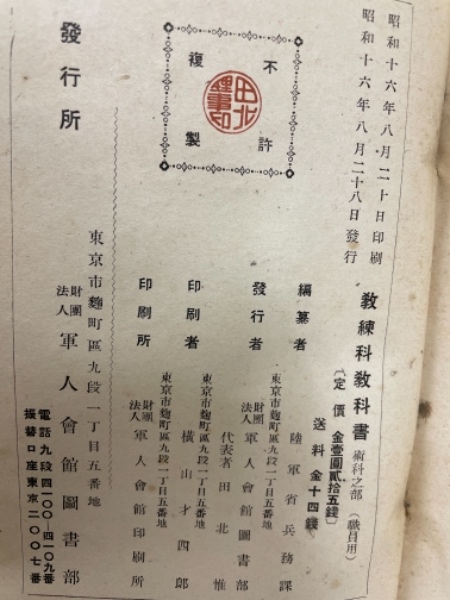 昭和十六年八月二十日印刷
昭和十六年八月二十八日發行
教練科教科書 術科之部 (職員用)
〔定價 金壹圓貳拾五錢〕
送料 金十四錢
不許
複製
編纂者 陸軍省兵務課
東京市麴町區九段一丁目五番地
發行者 財團法人 軍人會館圖書部
代表者 田北惟
東京市麴町區九段一丁目五番地
印刷者 橫山才四郎
東京市麴町區九段一丁目五番地
印刷所 財團法人 軍人會館印刷所
東京市麴町區九段一丁目五番地
發行所 財團法人 軍人會館圖書部
電話九段四一〇〇-四一〇九番
振替口座東京二〇〇七番